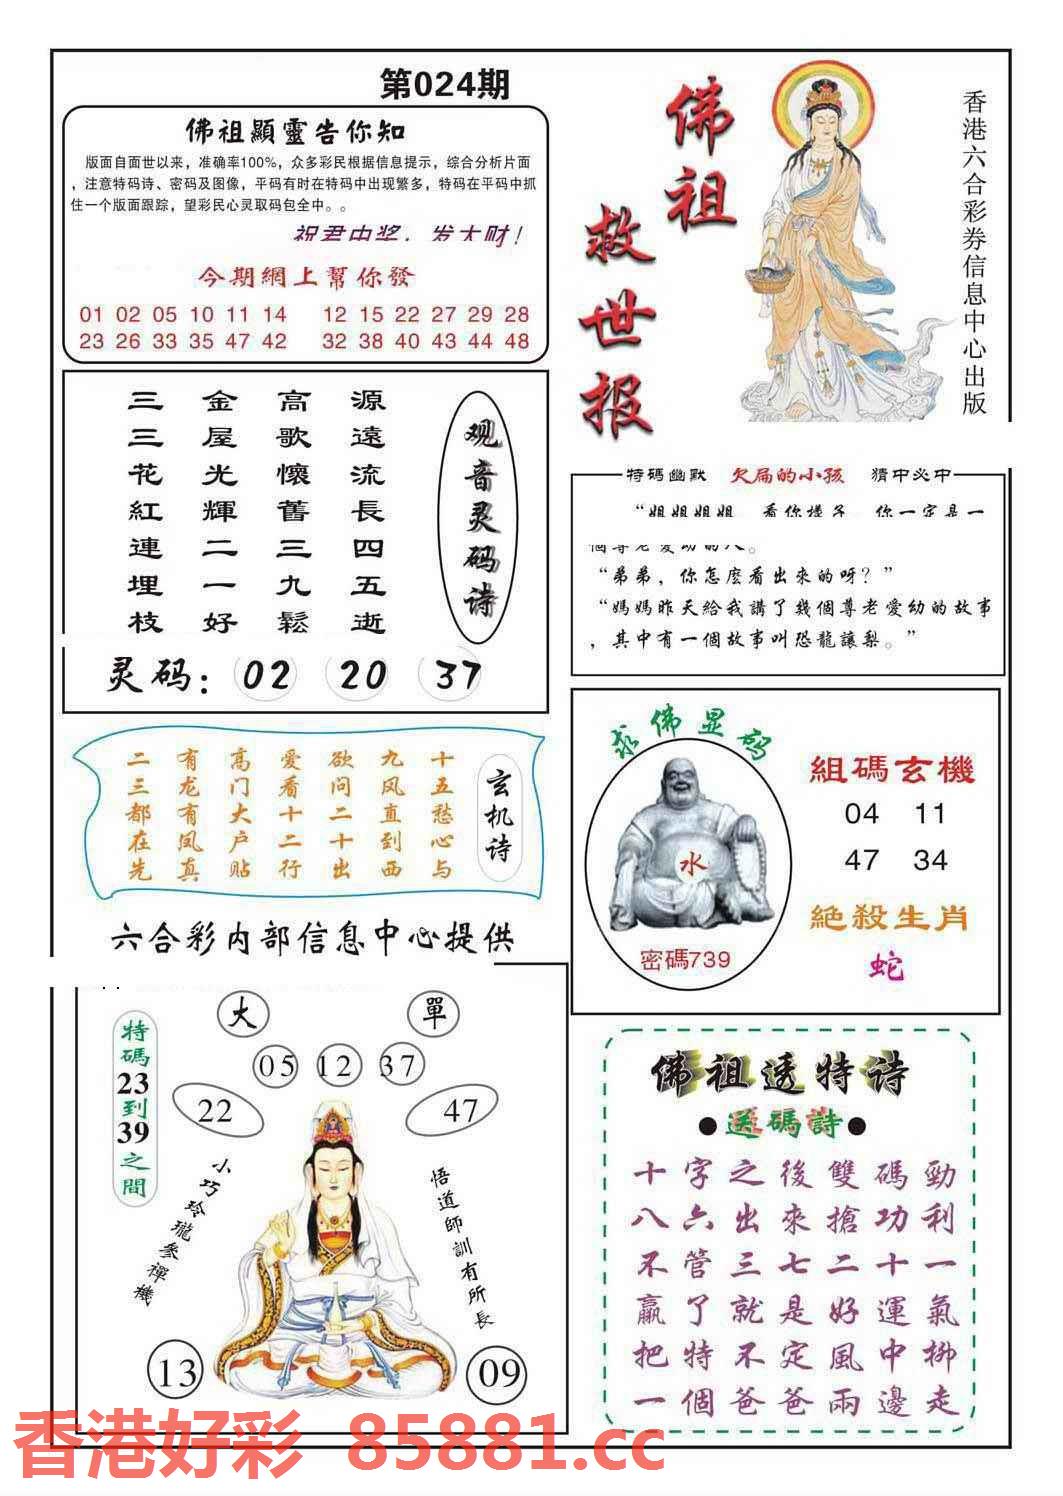 第024期
佛祖顯靈告你知
版面自面世以来，准确率100%，众多彩民根据信息提示，综合分析片面
，注意特码诗、密码及图像，平码有时在特码中出现繁多，特码在平码中抓
住一个版面跟踪，望彩民心灵取码包全中。。
祝君中奖，发大财！
今期網上幫你發
01 02 05 10 11 14 12 15 22 27 29 28
23 26 33 35 47 42 32 38 40 43 44 48
佛祖
救世报
香港六合彩券信息中心出版
观音灵码诗
源遠流長四五逝
高歌懷舊三九鬆
金屋光輝二一好
三三花紅連埋枝
灵码：02 20 37
特碼幽默 欠扁的小孩 猜中必中
“姐姐姐姐，看你樣子，你一定是一
個尊老愛幼的人。
“弟弟，你怎麽看出來的呀？”
“媽媽昨天給我講了幾個尊老愛幼的故事
，其中有一個故事叫恐龍讓梨。”
玄机诗
十五愁心与
九凤直到西
欲问二十出
爱看十二行
高门大户贴
有龙有凤真
二三都在先
六合彩内部信息中心提供
求佛显码
水
密碼739
組碼玄機
04 11
47 34
絕殺生肖
蛇
大
單
05 12 37
22
47
特碼23到39之間
小巧玲瓏參禪機
悟道師訓有所長
13
09
佛祖透特诗
●送碼詩●
十字之後雙碼勁
八六出來搶功利
不管三七二十一
贏了就是好運氣
把特不定風中擲
一個爸爸兩邊走
香港好彩 85881.cc